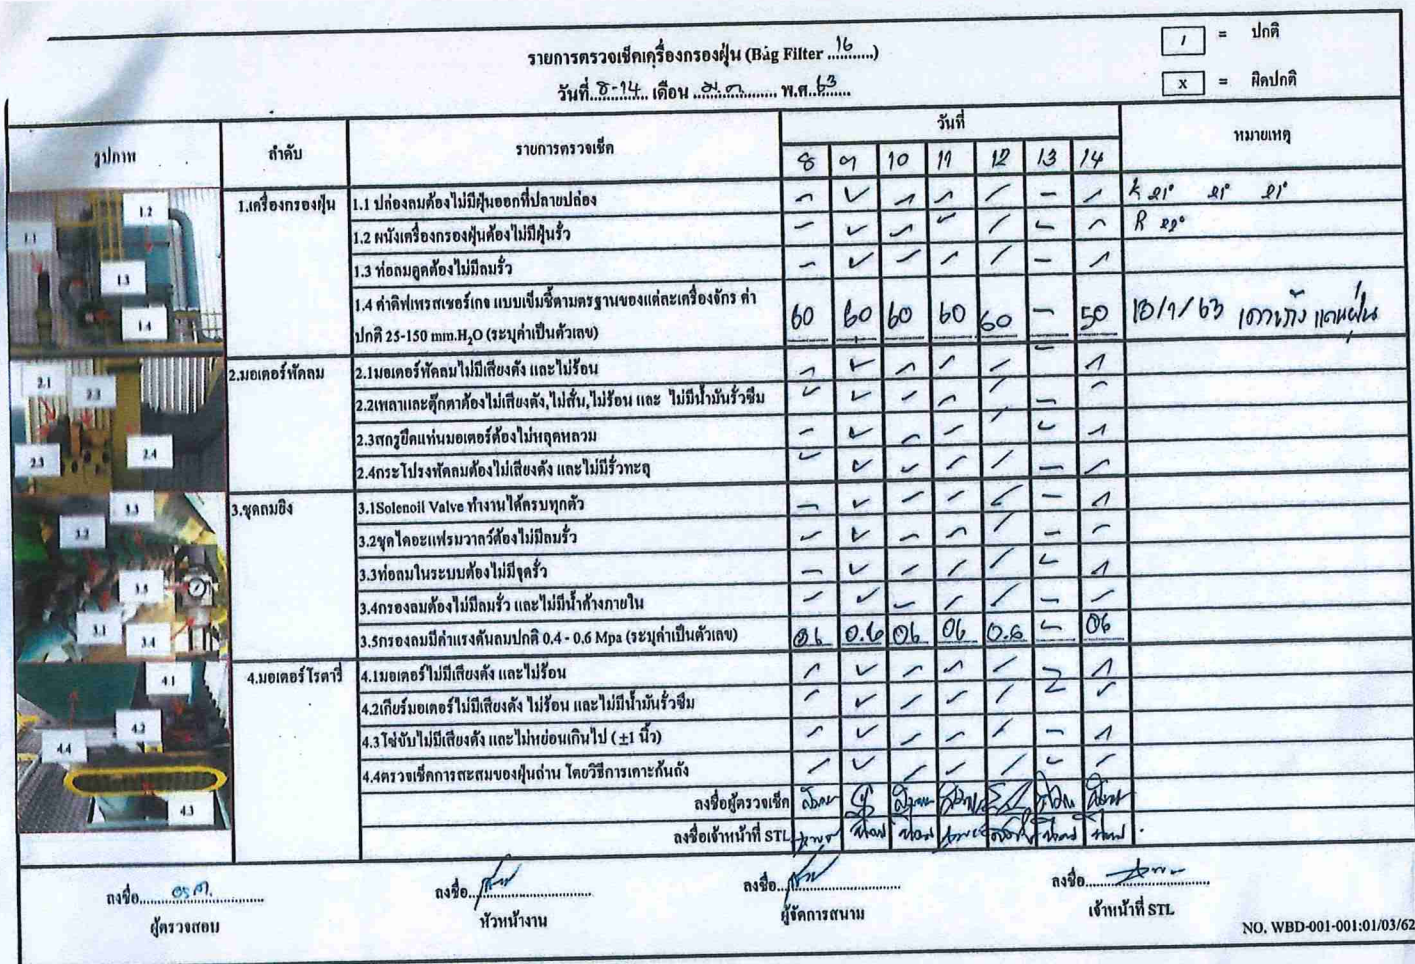 รายการตรวจเช็คเครื่องกรองฝุ่น (Bag Filter 16)
/ = ปกติ
วันที่ 8-14 เดือน ม.ค. พ.ศ. 63
x = ผิดปกติ
รูปภาพ ลำดับ รายการตรวจเช็ค วันที่ หมายเหตุ
8 9 10 11 12 13 14
1.เครื่องกรองฝุ่น 1.1 ปล่องลมต้องไม่มีฝุ่นออกที่ปลายปล่อง
1.2 ผนังเครื่องกรองฝุ่นต้องไม่มีฝุ่นรั่ว
1.3 ท่อลมดูดต้องไม่มีลมรั่ว
1.4 ค่าดิฟเพรสเชอร์เกจ แบบเข็มชี้ตามตรฐานของแต่ละเครื่องจักร ค่า
ปกติ 25-150 mm.H₂O (ระบุค่าเป็นตัวเลข) 60 60 60 60 60 - 50
2.มอเตอร์พัดลม 2.1มอเตอร์พัดลมไม่มีเสียงดัง และไม่ร้อน
2.2เพลาและตุ๊กตาต้องไม่เสียงดัง,ไม่สั่น,ไม่ร้อน และ ไม่มีน้ำมันรั่วซึม
2.3สกรูยึดแท่นมอเตอร์ต้องไม่หลุดหลวม
2.4กระโปรงพัดลมต้องไม่เสียงดัง และไม่มีรั่วทะลุ
3.ชุดลมยิง 3.1Solenoil Valve ทำงานได้ครบทุกตัว
3.2ชุดไดอะแฟรมวาล์วต้องไม่มีลมรั่ว
3.3ท่อลมในระบบต้องไม่มีจุดรั่ว
3.4กรองลมต้องไม่มีลมรั่ว และไม่มีน้ำค้างภายใน
3.5กรองลมมีค่าแรงดันลมปกติ 0.4 - 0.6 Mpa (ระบุค่าเป็นตัวเลข) 0.6 0.6 06 06 0.6 - 06
4.มอเตอร์โรตารี่ 4.1มอเตอร์ไม่มีเสียงดัง และไม่ร้อน
4.2เกียร์มอเตอร์ไม่มีเสียงดัง ไม่ร้อน และไม่มีน้ำมันรั่วซึม
4.3โซ่ขับไม่มีเสียงดัง และไม่หย่อนเกินไป (±1 นิ้ว)
4.4ตรวจเช็คการสะสมของฝุ่นถ่าน โดยวิธีการเคาะก้นถัง
ลงชื่อผู้ตรวจเช็ค
ลงชื่อเจ้าหน้าที่ STL
1.1 1.2 1.3 1.4
2.1 2.3 2.4
3.3 3.5 3.1 3.4
4.1 4.2 4.4 4.3
ลงชื่อ ลงชื่อ ลงชื่อ ลงชื่อ
ผู้ตรวจสอบ หัวหน้างาน ผู้จัดการสนาม เจ้าหน้าที่ STL
NO. WBD-001-001:01/03/62